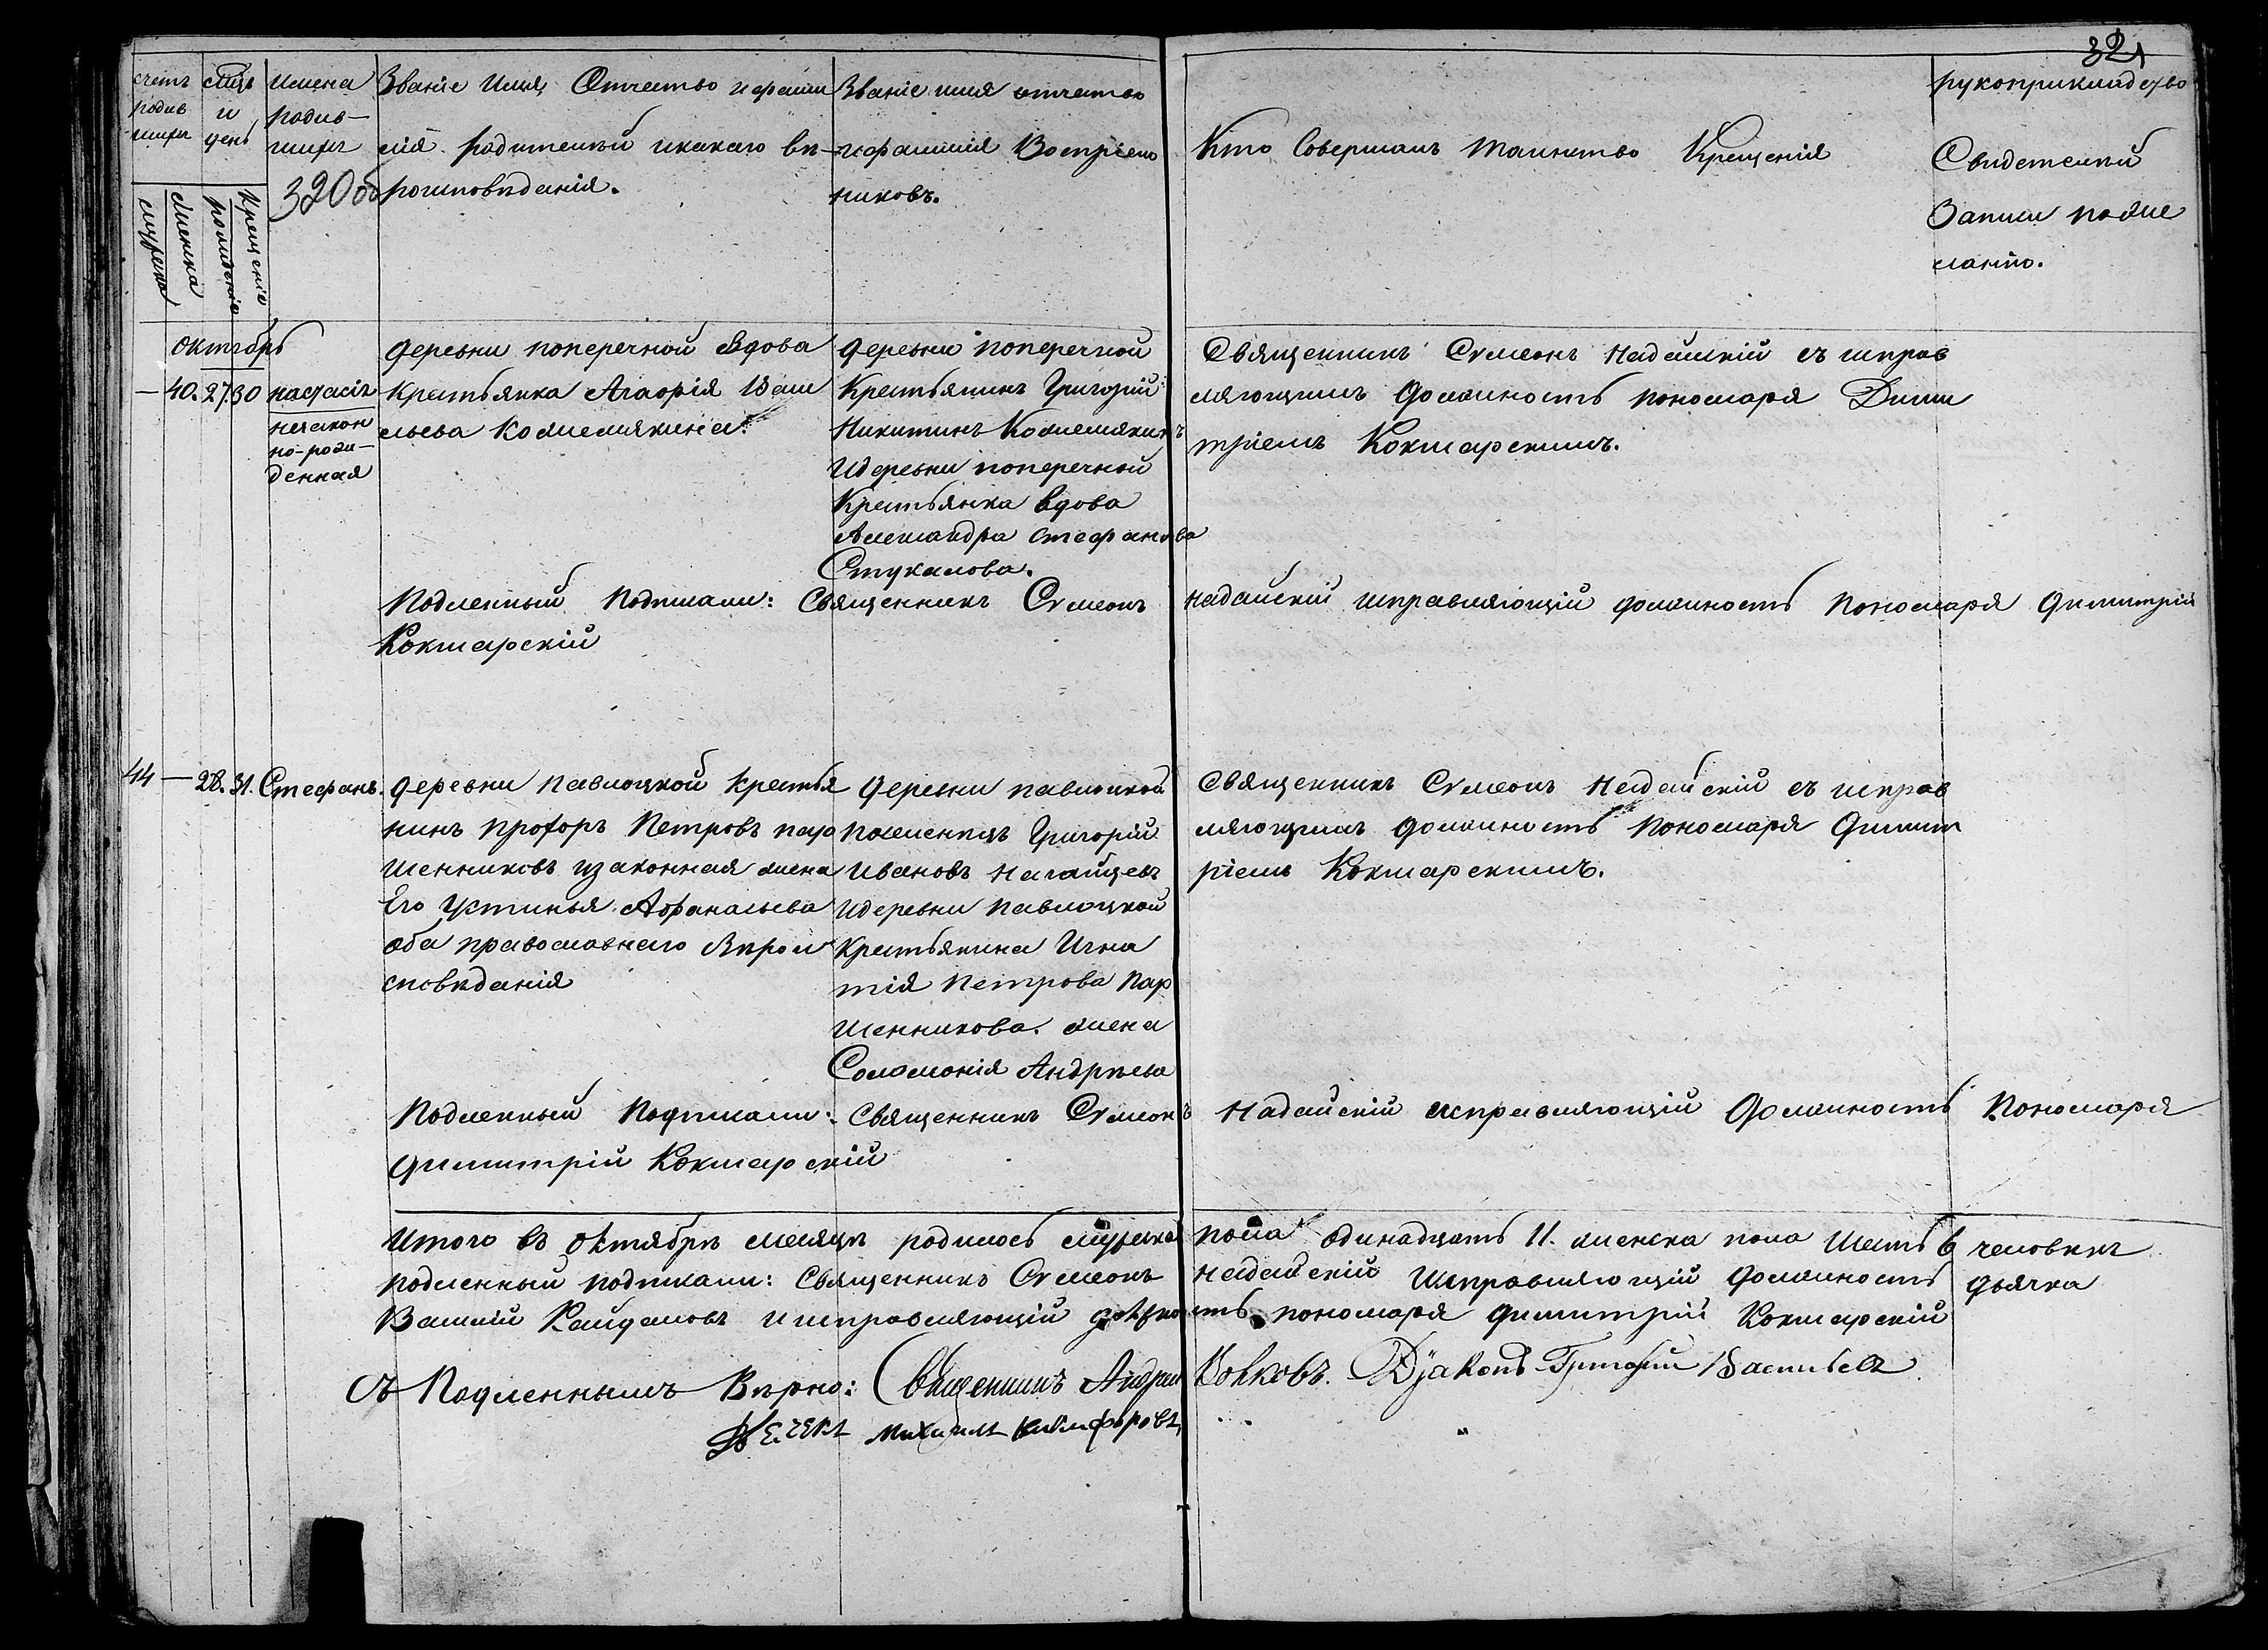 321
счетъ родив шихъ
мужеска
женска
мсць и день
рожденія
Крещенія
имена родив-
шихъ
320об
Званіе Имя, Отчество и фами
лія родителей и какаго вѣ-
роисповѣданія.
Званіе имя отчество
и фамилія Воспріем
никовъ.
Кто Совершалъ таинство Крещенія
рукоприкладство
Свидетелей
Записи по же
ланію.
октябрь
— 40. 27. 30 настасія
незакон
но-рож-
денная
деревни поперечной вдова
Крестьянка Агафія Васи
льева Кожемякина.
деревни поперечной
Крестьянинъ Григорій
Никитинъ Кожемякинъ
И деревни поперечной
Крестьянка вдова
Александра Стефанова
Стукалова.
Священникъ Сумеонъ Надежскій съ исправ
ляющимъ должность пономаря Дими
тріемъ Кокшарскимъ.
Подленный Подписали: Священникъ Сумеонъ исправляющій должность пономаря Димитрій
Кокшарскій
44 — 28. 31. Стефанъ.
деревни павлоцкой Крестья
нинъ Прохоръ Петровъ пар
шенниковъ и законная жена
Его Устинья Афанасьева
оба православнаго вѣрои
сповѣданія
деревни павлоцкой
поселенецъ Григорій
Ивановъ Нагайцевъ
И деревни павлоцкой
Крестьянина Игна
тія Петрова Пар
шенникова. жена
Соломонія Андрѣева
Священникъ Сумеонъ съ исправ
ляющимъ должность Пономаря Димит
ріемъ Кокшарскимъ.
Подленный Подписали: Священникъ Сумеонъ исправляющій должность Пономаря
Димитрій Кокшарскій
Итого въ октябрѣ месяцѣ родилось мужеска пола одинадцать 11. женска пола шесть 6 человѣкъ
Подленный подписали: Священникъ Сумеонъ исправляющій должность дьячка
Василій Кайдаловъ и исправляющій должность пономаря Димитрій Кокшарскій
Съ Подленнымъ Вѣрно: Священникъ Андрей Волковъ. Дьяконъ Григорій Васильевъ
Дьячекъ Михаилъ Никифоровъ